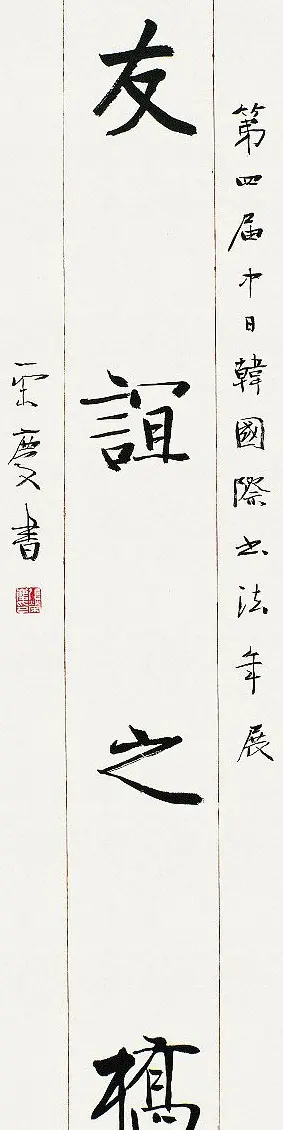 第四届中日韓國際书法年展
友誼之橋
榮慶書